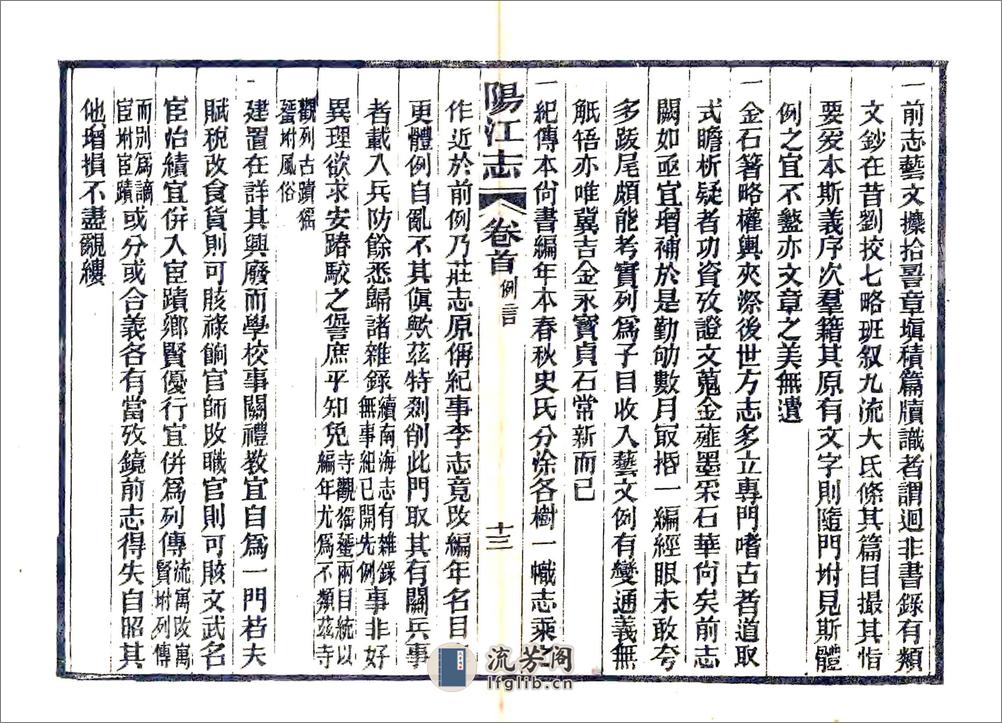 一前志藝文攈拾習章塡積篇牘識者謂迥非書錄有類
文鈔在昔劉挍七略班叙九流大氐條其篇目撮其恉
要爰本斯義序次羣籍其原有文字則隨門坿見斯體
例之宜不盭亦文章之美無遺
一金石箸略權輿夾漈後世方志多立專門嗜古者道取
式瞻析疑者功資攷證文蒐金薤墨采石華尙矣前志
闕如亟宜增補於是勤劬數月冣捃一編經眼未敢夸
多跋尾頗能考實列爲子目收入藝文例有變通義無
觝牾亦唯冀吉金永寶貞石常新而已
一紀傳本尙書編年本春秋史氏分涂各樹一幟志乘之
陽江志 卷首 例言 十三
作近於前例乃莊志原偁紀事李志竟改編年名目
更體例自亂不其傎歟茲特剟削此門取其有關兵事
者載入兵防餘悉歸諸雜錄續南海志有雜錄無事紀已開先例事非好
異理欲求安踳駮之誚庶乎知免寺觀猺蜑兩目統以編年尤爲不類茲寺
觀列古蹟猺蜑坿風俗
一建置在詳其興廢而學校事關禮敎宜自爲一門若夫
賦稅改食貨則可賅祿餉官師改職官則可賅文武名
宦治績宜併入宦蹟鄉賢優行宜併爲列傳流寓改寓賢坿列傳
而别爲謫宦坿宦蹟或分或合義各有當攷鏡前志得失自昭其
他增損不盡覶縷
流芳阁
lfglib.cn